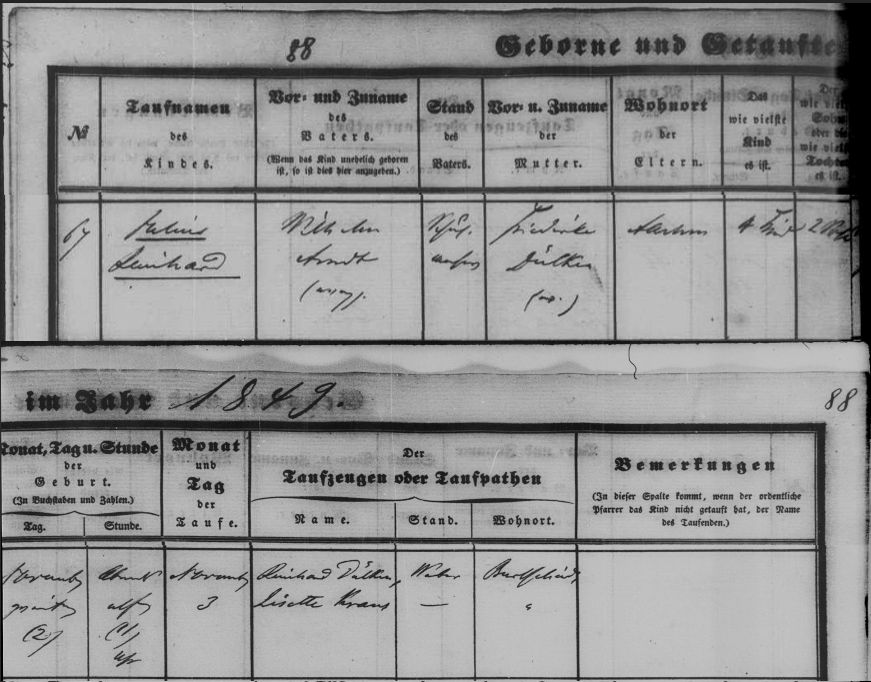 88
Geborne und Getaufte
№
Taufnamen
des
Kindes.
Vor- und Zuname
des
Vaters.
(Wenn das Kind unehelich geboren
ist, so ist dies hier anzugeben.)
Stand
des
Vaters.
Vor- u. Zuname
der
Mutter.
Wohnort
der
Eltern.
Das
wie vielste
Kind
es ist.
Der
wie
Sohn
oder die
wie
Tochter
es ist.
67
Julius
Reinhard
Wilhelm
Arndt
Friederike
Dülken
Aachen
4
2
im Jahr 1849.
88
Monat, Tag u. Stunde
der
Geburt.
(In Buchstaben und Zahlen.)
Tag.
Stunde.
Monat
und
Tag
der
Taufe.
Der
Taufzeugen oder Taufpathen
Name.
Stand.
Wohnort.
Bemerkungen
(In dieser Spalte kommt, wenn der ordentliche
Pfarrer das Kind nicht getauft hat, der Name
des Taufenden.)
(2)
elf
(11)
Uhr
3
Reinhard Dülken,
Lisette Kraus
Weber
—
Burtscheid
"